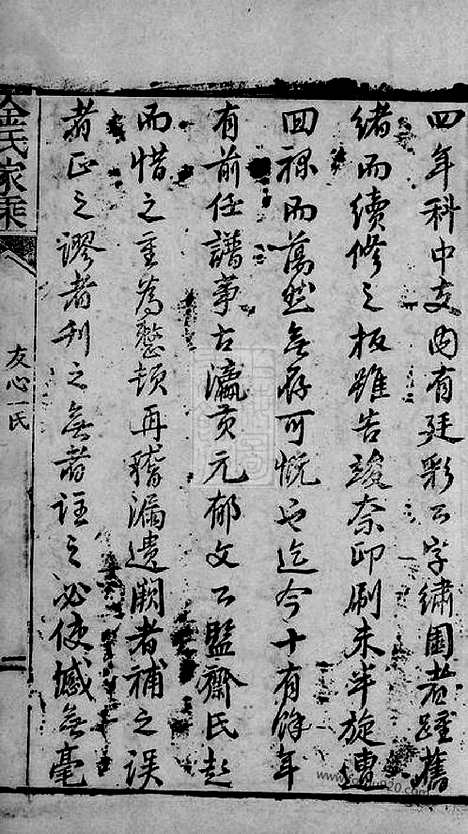 四年科中支內有廷彩公字繡圃者踵舊
緒而續修之板雖告竣奈印刷未半旋遭
回祿而蕩然無存可慨也迄今十有餘年
有前任譜事古瀛貢元郁文公盟齋氏起
而惜之重為整頓再稽漏遺闕者補之誤
者正之謬者刊之無者註之必使憾無毫
金氏家乘
友心一氏
二